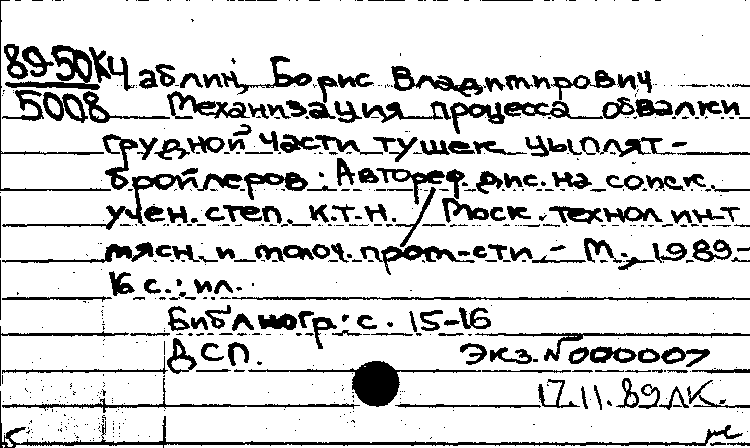 89-50К Чаблин, Борис Владимирович
5008 Механизация процесса обвалки
грудной части тушек цыплят-
бройлеров: Автореф. дис. на соиск.
учен. степ. к.т.н. / Моск. технол. ин-т
мясн. и молоч. пром-сти. - М., 1989-
16 с.: ил.
Библиогр: с. 15-16
ДСП. Экз. N 000007
17.11.89 ЛК.